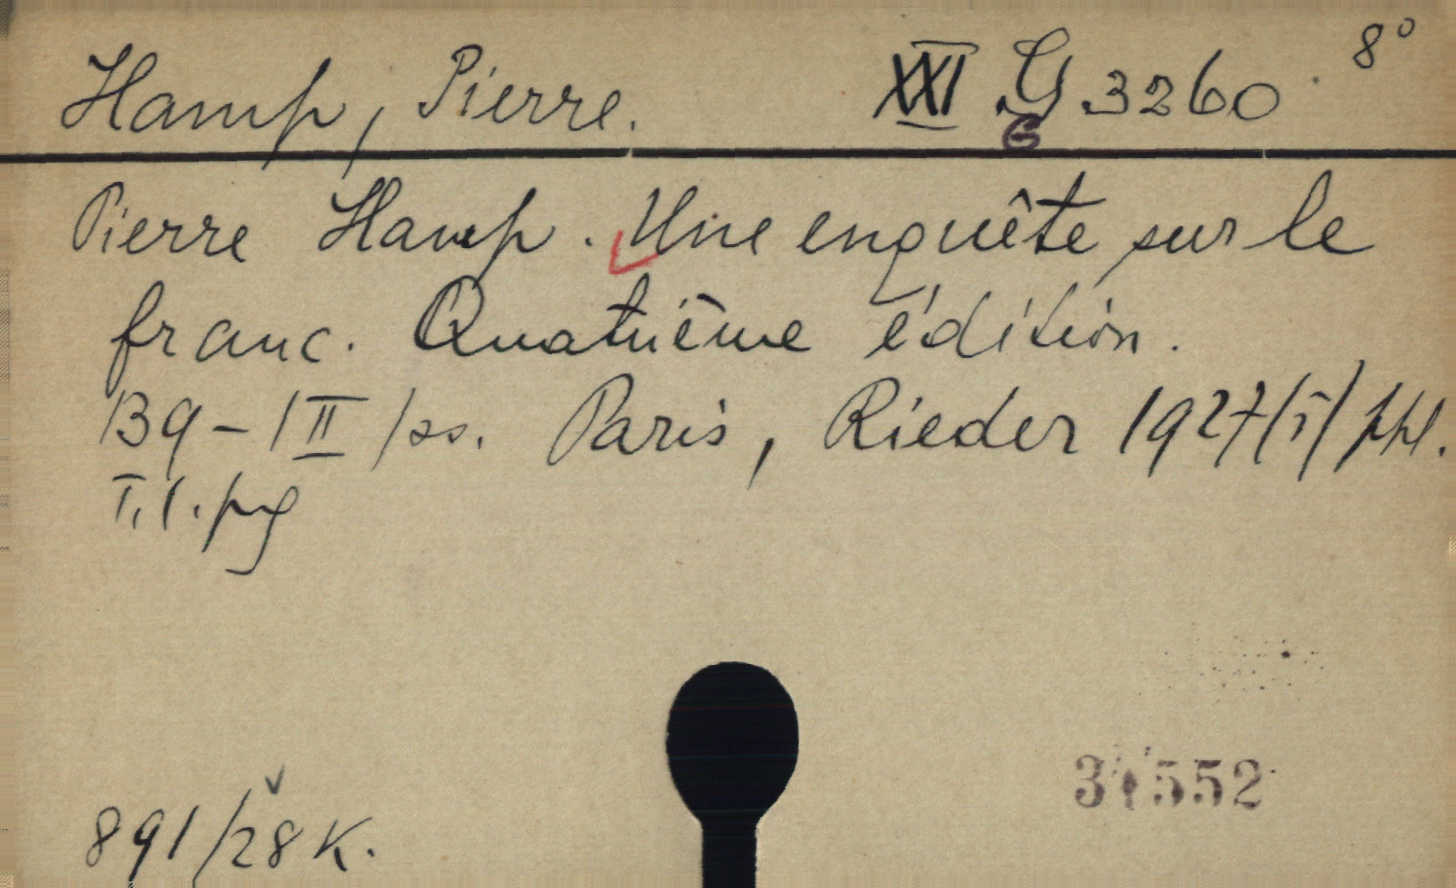 Hamp, Pierre. XXI G 3260 8°
G
Pierre Hamp. Une enquête sur le
franc. Quatrième édition.
139-III/ss. Paris, Rieder 1927/5/
I, 1.
34552
891/28 K.